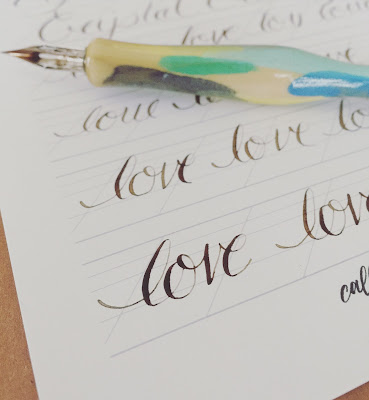 Crystal
love lov love
love lo
love love lo
love love
call